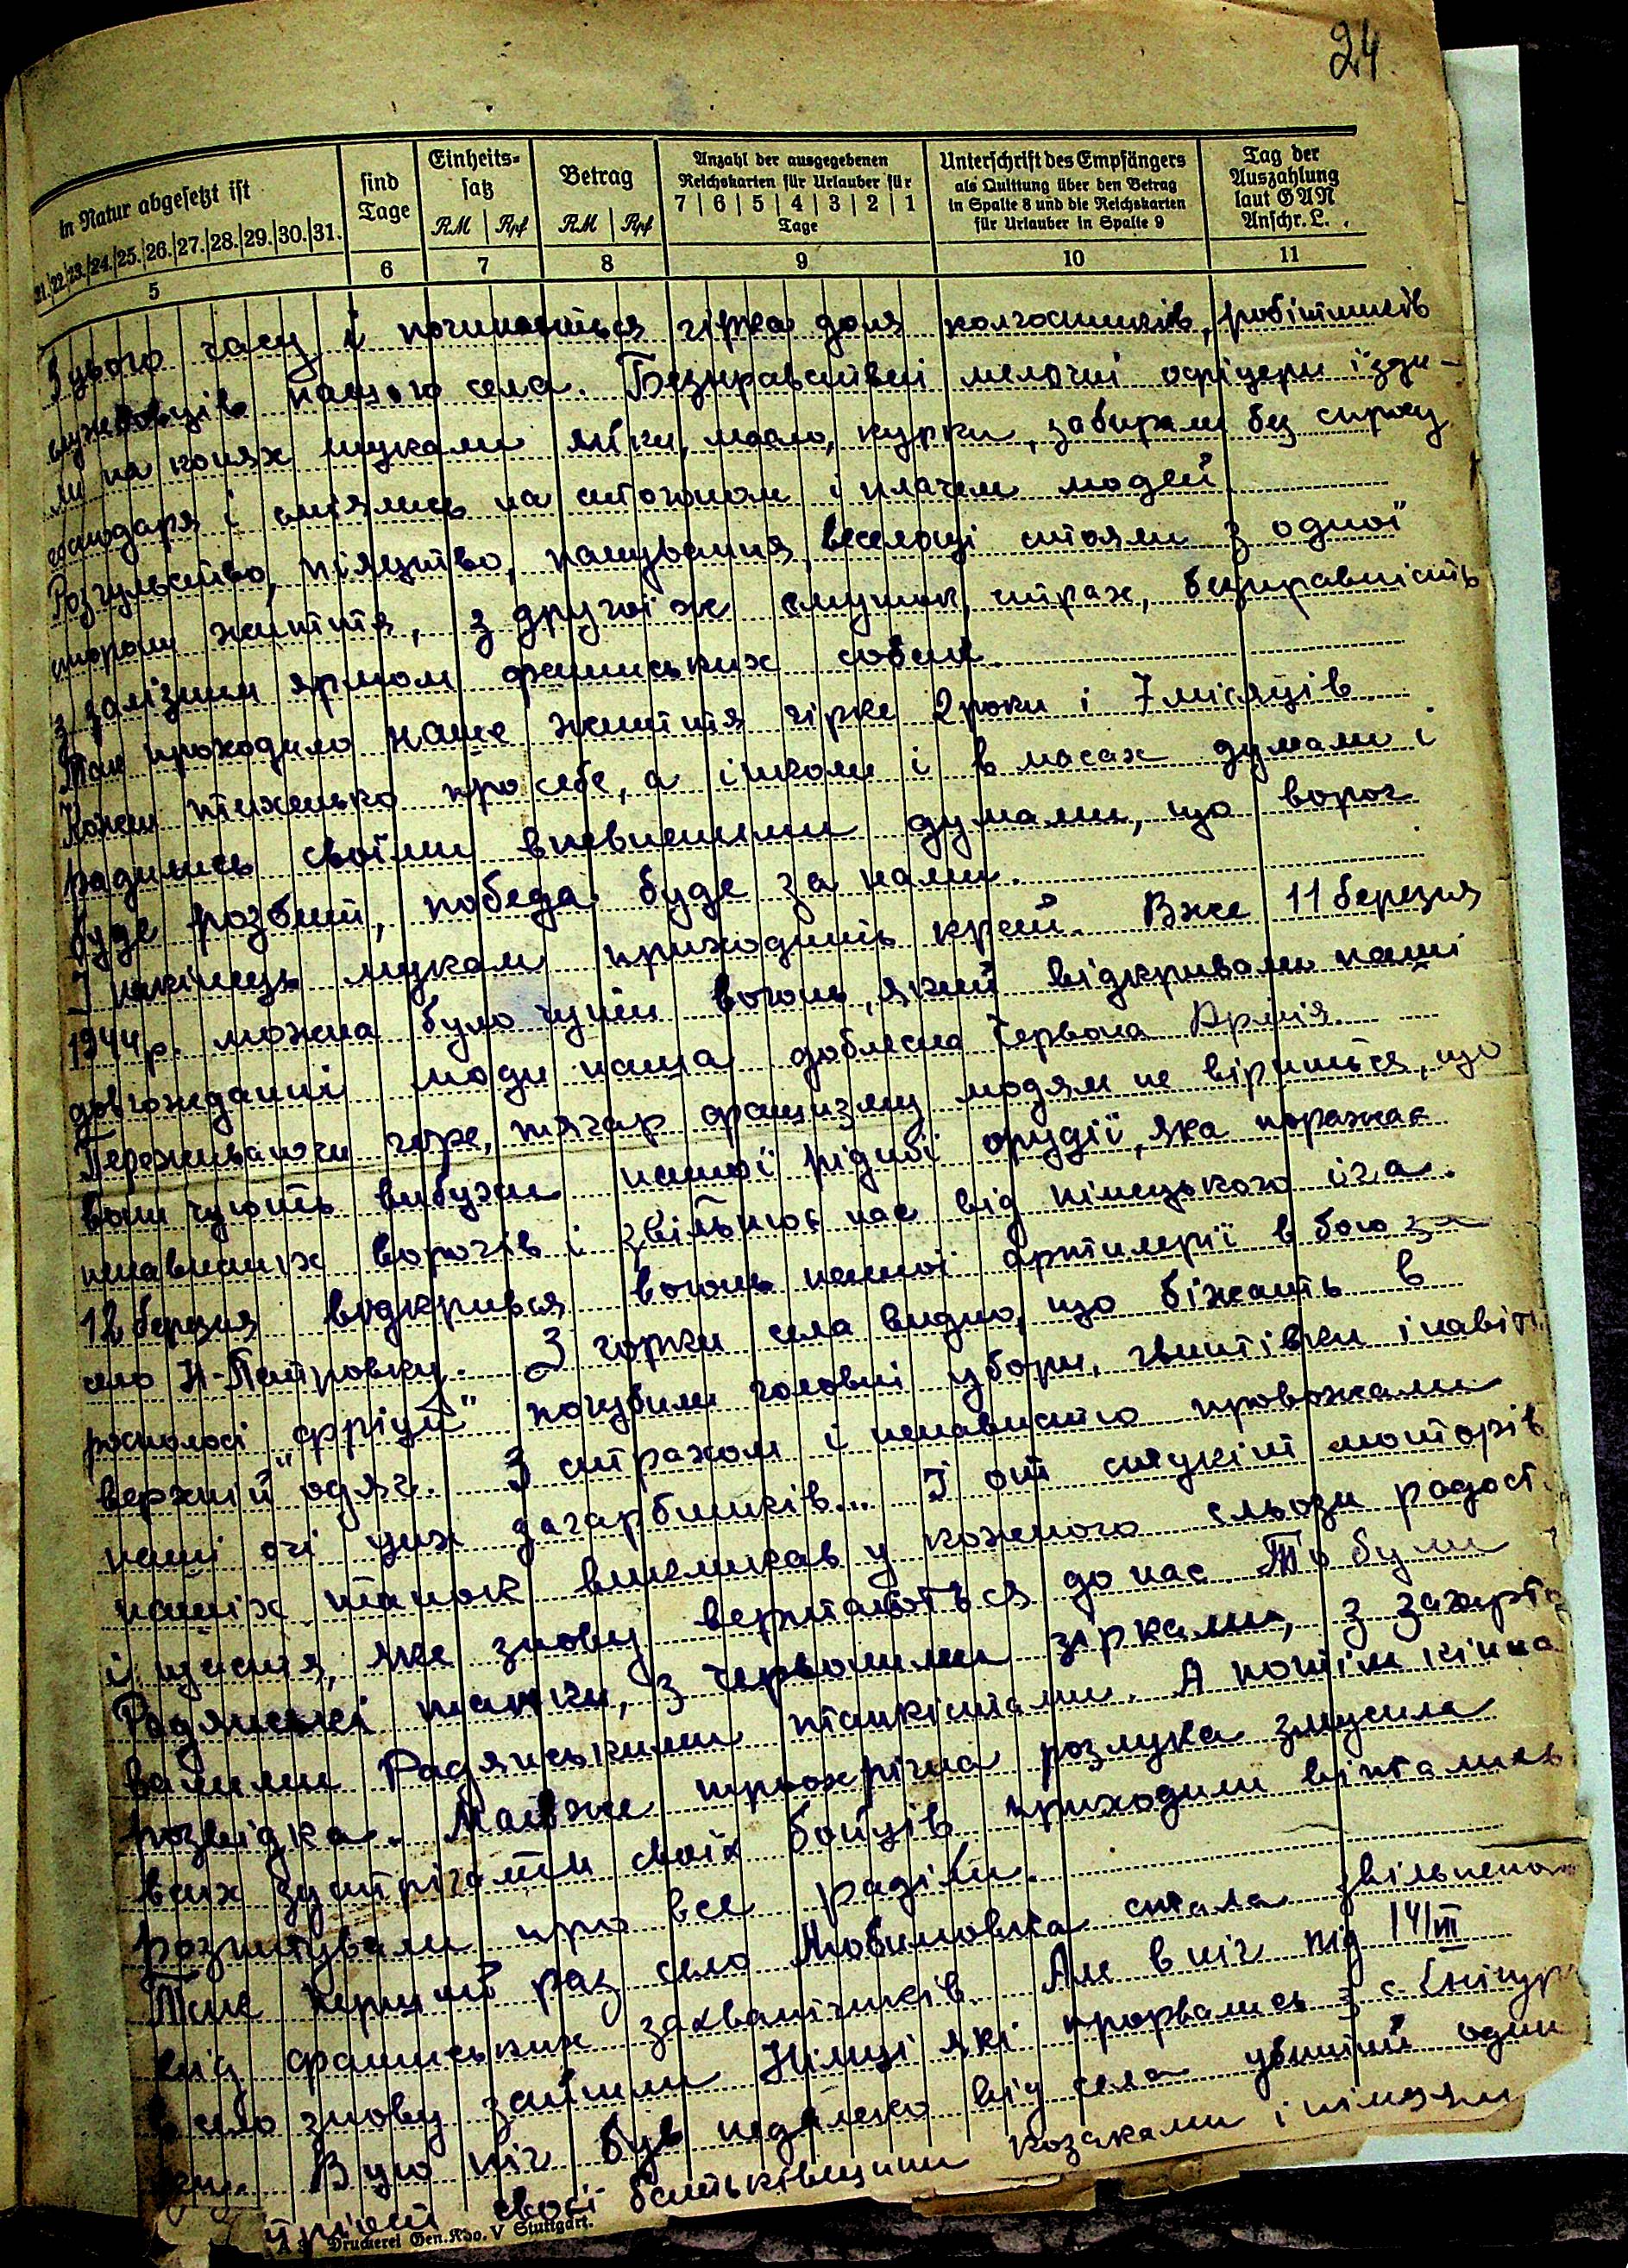 24.
in Natur abgesetzt ist
21. 22. 23. 24. 25. 26. 27. 28. 29. 30. 31.
5
sind Tage
6
Einheits-
satz
RM | Rpf
7
Betrag
RM | Rpf
8
Anzahl der ausgegebenen
Reichskarten für Urlauber für
7 | 6 | 5 | 4 | 3 | 2 | 1
Tage
9
Unterschrift des Empfängers
als Quittung über den Betrag
in Spalte 8 und die Reichskarten
für Urlauber in Spalte 9
10
Tag der
Auszahlung
laut GAN
Anschr. L. .
11
З цього часу і починається гірка доля колгоспників, робітників
службовців нашого села. Безнравствені мєлочні офіцери їзди-
ли на конях шукали яйки, масло, курки, забирали без спросу
господаря і сміялись на стогоном і плачем людей
Розгульство, піянство, панування, веселощі стояли з одної
сторони життя, з другої ж смуток, страх, безправність
з залізним ярмом фашиських собак.
Так проходило наше життя гірке 2 роки і 7 місяців.
Кожен тихенько про себе, а інколи і в масах думали і
радились своїми впевненими думами, що ворог
буде розбит, победа буде за нами.
І накінець мукам приходить край. Вже 11 березня
1944 р. можна було чути вогонь, який відкривали наші
довгожданні люди наша доблесна Червона Армія.
Переживаючи горе, тягар фашизму людям не віриться, що
вони чують вибухи нашої рідної орудії, яка поражає
ненависних ворогів і звільнює нас від німецького іга.
12 березня відкрився вогонь нашої артилерії в бою за
село Н-Петровку. З горки села видно, що біжать в
росполосі „фріци" погубили головні убори, гвинтівки і навіть
верхній одяг. З страхом і ненавистю провожали
наші очі цих загарбників... І от стукіт моторів
наших танок викликав у кожного сльози радості
і щастя, яке знову вертається до нас. То були
Радянські танки, з червоними зірками, з загарто
ваними Радянськими танкістами. А потім кінна
розвідка. Майже трьохрічна розлука змусила
всих зустрічати своїх бойців, приходили вітались
розпитували про все раділи.
Так перший раз село Любимовка стала звільнена
від фашиських захватчиків. Але в ніч під 14/III
в село знову зайшли Німці які прорвались з с. Снігур
вки. В цю ніч був недалеко від села убитий один
своєї батьківщини козаками і німцями
Druckerei Gen.Kdo. V Stuttgart.